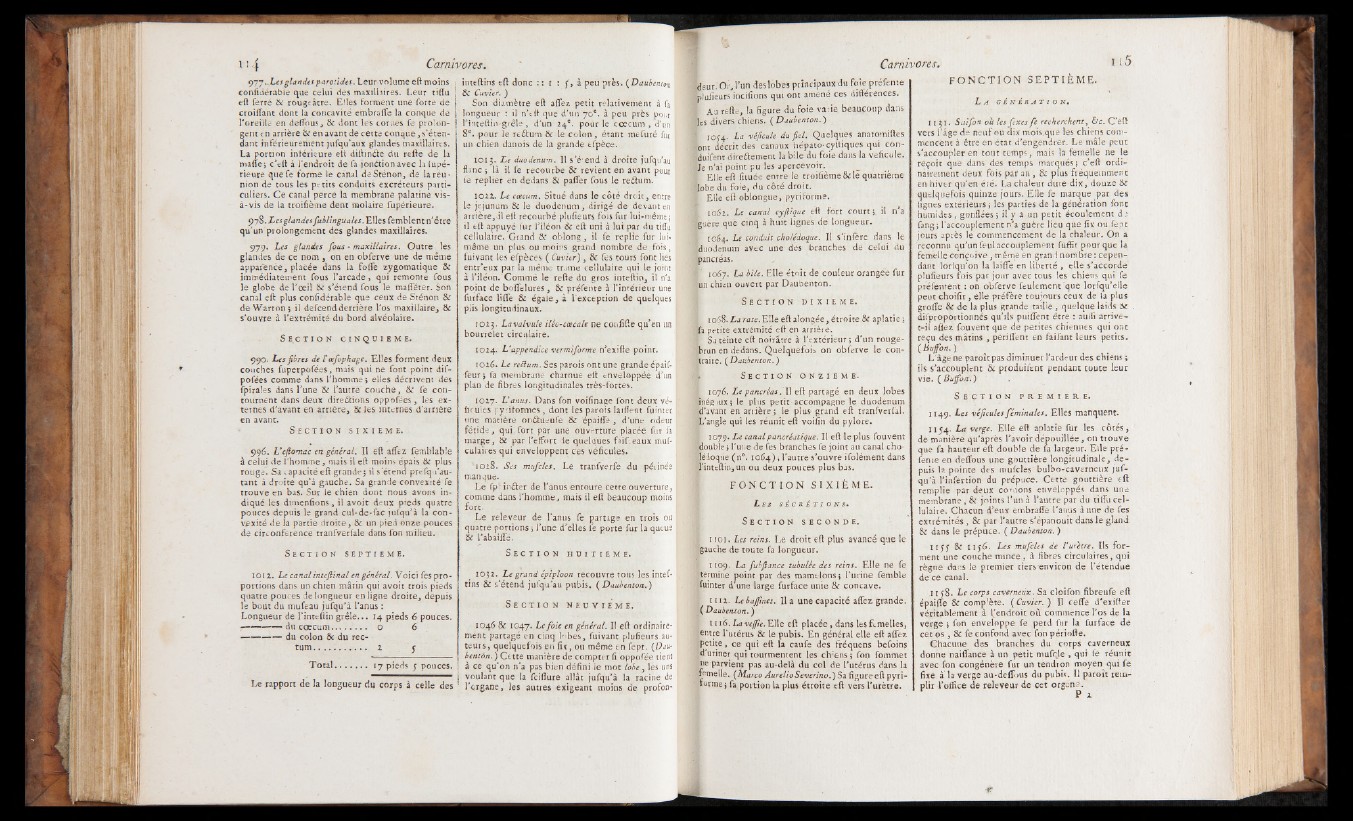 114 Carnivores.
977. Les glandes parotides. Leur volume est moins
considérable que celui des maxillaires. Leur tissu
est serré & rougeâtre. Elles forment une sorte de
croissant dont la concavité embrasse la conque de
l'oreille en dessous, & dont les cornes se prolon-
gent en arrière & en avant de cette conque, s'éten-
dant inférieurement jusqu'aux glandes maxillaires.
La portion intérieure est distincte du reste de la
masse; c'est à l'endroit de sa jonction avec la supé-
rieure que se forme le canal de Sténon, de la réu-
nion de tous les petits conduits excréteurs parti-
culiers. Ce canal perce la membrane palatine vis-
à-vis de la troisième dent molaire supérieure.
978. Les glandes sublinguales. Elles semblent n'être
qu'un prolongement des glandes maxillaires.
979. Les glandes sous-maxillaires. Outre les
glandes de ce nom, on en observe une de même
apparence, placée dans la fosse zygomatique &
immédiatement sous l'arcade, qui remonte sous
le globe de l'œil & s'étend sous le masséter. Son
canal est plus considérable que ceux de Sténon &
de Warton; il descend derrière l'os maxillaire, &
s'ouvre à l'extrémité du bord alvéolaire.
SECTION CINQUIEME.
990. Les fibres de l'œsophage. Elles forment deux
couches superposées, mais qui ne sont point dis-
posées comme dans l'homme; elles décrivent des
spirales dans l'une & l'autre couche, & se con-
tournent dans deux directions opposées, les ex-
ternes d'avant en arrière, & les internes d'arrière
en avant.
SECTION SIXIEME.
996. L'estomac en général. Il est assez semblable
à celui de l'homme, mais il est moins épais & plus
rouge. Sa capacité est grande; il s'étend presqu'au-
tant à droite qu'à gauche. Sa grande convexité se
trouve en bas. Sur le chien dont nous avons in-
diqué les dimensions, il avoit deux pieds quatre
pouces depuis le grand cul-de-sac jusqu'à la con-
vexité de la partie droite, & un pied onze pouces
de circonférence transversale dans son milieu.
SECTION SEPTIEME.
1012. Le canal intestinal en général. Voici ses pro-
portions dans un chien mâtin qui avoit trois pieds
quatre pouces de longueur en ligne droite, depuis
le bout du museau jusqu'à l'anus:
Longueur de l'intestin grêle... 14 pieds 6 pouces.
——— du cœcum........ 0 6
——— du colon & du rec-
tum............ 2 5
Total....... 17 pieds 5 pouces.
Le rapport de la longueur du corps à celle des
intestins est donc :: 1 : 5, à peu près. (Daubenton
& Cuvier.)
Son diamètre est assez petit relativement à sa
longueur : il n'est que d'un 70e. à peu près pour
l'intestin grêle, d'un 24e. pour le cœcum, d'un
8e. pour le rectum & le colon, étant mesuré sur
un chien danois de la grande espèce.
1013. Le duodenum. Il s'étend à droite jusqu'au
flanc; là il se recourbe & revient en avant pour
se replier en dedans & passer sous le rectum.
1022. Le cœcum. Situé dans le côté droit, entre
le jejunum & le duodenum, dirigé de devant en
arrière, il est recourbé plusieurs fois sur lui-même;
il est appuyé sur l'iléon & est uni à lui par du tissu
cellulaire. Grand & oblong, il se replie sur lui-
même un plus ou moins grand nombre de fois,
suivant les espèces (Cuvier), & ses tours sont liés
entr'eux par la même trame cellulaire qui le joint
à l'iléon. Comme le reste du gros intestin, il n'a
point de bosselures, & présente à l'intérieur une
surface lisse & égale, à l'exception de quelques
plis longitudinaux.
1023. La valvule iléo-cœcale ne consiste qu'en un
bourrelet circulaire.
1024. L'appendice vermiforme n'existe point.
1026. Le rectum. Ses parois ont une grande épais-
seur; sa membrane charnue est enveloppée d'un
plan de fibres longitudinales très-fortes.
1027. L'anus. Dans son voisinage sont deux vé-
sicules pyriformes, dont les parois laissent suinter
une matière onctueuse & épaisse, d'une odeur
fétide, qui sort par une ouverture placée sur la
marge, & par l'effort de quelques faisceaux mus-
culaires qui enveloppent ces vésicules.
1028. Ses muscles. Le transverse du périnée
manque.
Le sphincter de l'anus entoure cette ouverture,
comme dans l'homme, mais il est beaucoup moins
fort.
Le releveur de l'anus se partage en trois ou
quatre portions; l'une d'elles se porte sur la queue
& l'abaisse.
SECTION HUITIEME.
1032. Le grand épiploon recouvre tous les intes-
tins & s'étend jusqu'au pubis. (Daubenton.)
SECTION NEUVIEME.
1046 & 1047. Le foie en général. Il est ordinaire-
ment partagé en cinq lobes, suivant plusieurs au-
teurs, quelquefois en six, ou même en sept. (Dau-
benton.) Cette manière de compter si opposée tient
à ce qu'on n'a pas bien défini le mot lobe, les uns
voulant que la scissure allât jusqu'à la racine de
l'organe, les autres exigeant moins de profon-
Carnivores. 115
deur. Or, l'un des lobes principaux du foie présente
plusieurs incisions qui ont amené ces différences.
Au reste, la figure du foie varie beaucoup dans
les divers chiens. (Daubenton.)
1054. La vésicule du fiel. Quelques anatomistes
ont décrit des canaux hépato-cystiques qui con-
duisent directement la bile du foie dans la vésicule.
Je n'ai point pu les apercevoir.
Elle est située entre le troisième & le quatrième
lobe du foie, du côté droit.
Elle est oblongue, pyriforme.
1062. Le canal cystique est fort court; il n'a
guère que cinq à huit lignes de longueur.
1064. Le conduit cholédoque. Il s'insère dans le
duodenum avec une des branches de celui du
pancréas.
1067. La bile. Elle étoit de couleur orangée sur
un chien ouvert par Daubenton.
SECTION DIXIEME.
1068. La rate. Elle est alongée, étroite & aplatie;
sa petite extrémité est en arrière.
Sa teinte est noirâtre à l'extérieur; d'un rouge-
brun en dedans. Quelquefois on observe le con-
traire. (Daubenton.)
SECTION ONZIEME.
1076. Le pancréas. Il est partagé en deux lobes
inégaux; le plus petit accompagne le duodenum
d'avant en arrière; le plus grand est transversal.
L'angle qui les réunit est voisin du pylore.
1079. Le canal pancréatique. Il est le plus souvent
double; l'une de ses branches se joint au canal cho-
lédoque (n°. 1064), l'autre s'ouvre isolément dans
l'intestin, un ou deux pouces plus bas.
FONCTION SIXIÈME.
LES SÉCRÉTIONS.
SECTION SECONDE.
1101. Les reins. Le droit est plus avancé que le
gauche de toute sa longueur.
1109. La substance tubulée des reins. Elle ne se
termine point par des mamelons; l'urine semble
suinter d'une large surface unie & concave.
1112. Le bassinet. Il a une capacité assez grande.
(Daubenton.)
1116. La vessie. Elle est placée, dans les femelles,
entre l'utérus & le pubis. En général elle est assez
petite, ce qui est la cause des fréquens besoins
d'uriner qui tourmentent les chiens; son sommet
ne parvient pas au-delà du col de l'utérus dans la
femelle. (Marco Aurelio Severino.) Sa figure est pyri-
forme; sa portion la plus étroite est vers l'urètre.
FONCTION SEPTIÈME.
LA GÉNÉRATION.
1131. Saison où les sexes se recherchent, &c. C'est
vers l'âge de neuf ou dix mois que les chiens com-
mencent à être en état d'engendrer. Le mâle peut
s'accoupler en tout temps, mais la femelle ne le
reçoit que dans des temps marqués; c'est ordi-
nairement deux fois par an, & plus fréquemment
en hiver qu'en été. La chaleur dure dix, douze &
quelquefois quinze jours. Elle se marque par des
signes extérieurs; les parties de la génération sont
humides, gonflées; il y a un petit écoulement de
sang; l'accouplement n'a guère lieu que six ou sept
jours après le commencement de la chaleur. On a
reconnu qu'un seul accouplement suffit pour que la
femelle conçoive, même en grand nombre: cepen-
dant lorsqu'on la laisse en liberté, elle s'accorde
plusieurs fois par jour avec tous les chiens qui se
présentent : on observe seulement que lorsqu'elle
peut choisir, elle préfère toujours ceux de la plus
grosse & de la plus grande taille, quelque laids &
disproportionnés qu'ils puissent être : aussi arrive-
t-il assez souvent que de petites chiennes qui ont
reçu des mâtins, périssent en faisant leurs petits.
(Buffon.)
L'âge ne paroît pas diminuer l'ardeur des chiens;
ils s'accouplent & produisent pendant toute leur
vie. (Buffon.)
SECTION PREMIERE.
1149. Les vésicules séminales. Elles manquent.
1154. La verge. Elle est aplatie sur les côtés,
de manière qu'après l'avoir dépouillée, on trouve
que sa hauteur est double de sa largeur. Elle pré-
sente en dessous une gouttière longitudinale, de-
puis la pointe des muscles bulbo-caverneux jus-
qu'à l'insertion du prépuce. Cette gouttière est
remplie par deux cordons enveloppés dans une
membrane, & joints l'un à l'autre par du tissu cel-
lulaire. Chacun d'eux embrasse l'anus à une de ses
extrémités, & par l'autre s'épanouit dans le gland
& dans le prépuce. (Daubenton.)
1155 & 1156. Les muscles de l'urètre. Ils for-
ment une couche mince, à fibres circulaires, qui
règne dans le premier tiers environ de l'étendue
de ce canal.
1158. Le corps caverneux. Sa cloison fibreuse est
épaisse & complète. (Cuvier.) Il cesse d'exister
véritablement à l'endroit où commence l'os de la
verge; son enveloppe se perd sur la surface de
cet os, & se confond avec son périoste.
Chacune des branches du corps caverneux
donne naissance à un petit muscle, qui se réunit
avec son congénère sur un tendron moyen qui se
fixe à la verge au-dessous du pubis. Il paroît rem-
plir l'office de releveur de cet organe.
P 2